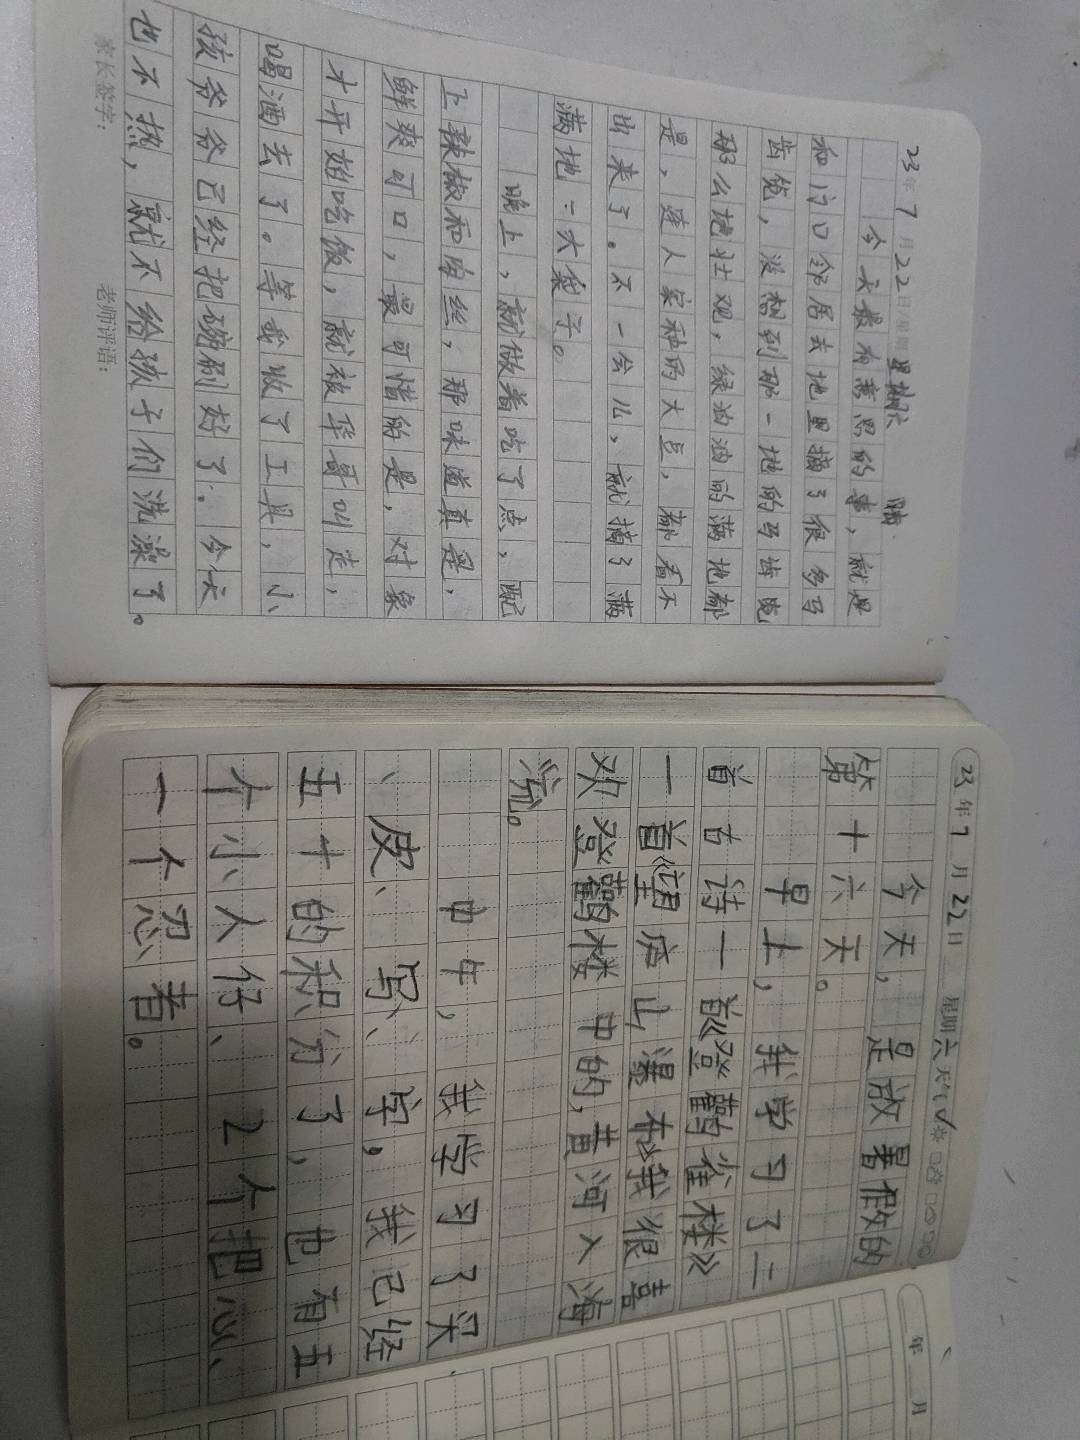 23年7月22日/星期 星期六 晴.
今天最有意思的事,就是
和门口邻居去地里摘了很多马
齿笕,没想到那一地的马齿笕
那么地壮观,绿油油的满地都
是,连人家种的大豆,都看不
出来了。不一会儿,就摘了满
满地一大袋子。
晚上,就做着吃了点,配
上辣椒和肉丝,那味道真是,
鲜爽可口,最可惜的是,对象
才开始吃饭,就被华哥叫走,
喝酒去了。等我收了工具,小
孩爷爷已经把碗刷好了.今天
也不热,就不给孩子们洗澡了。
家长签字: 老师评语:
23年7月22日 星期六天气
今天,是放暑假的
第十六天。
早上,我学习了二
首古诗一首《登鹳雀楼》
一首《望庐山瀑布》我很喜
欢登鹳楼中的,黄河入海
流。
中午,我学习了哭
、皮、写、字,我已经
五十的积分了,也有五
个小人仔、2个把心、
一个忍者。
年 月